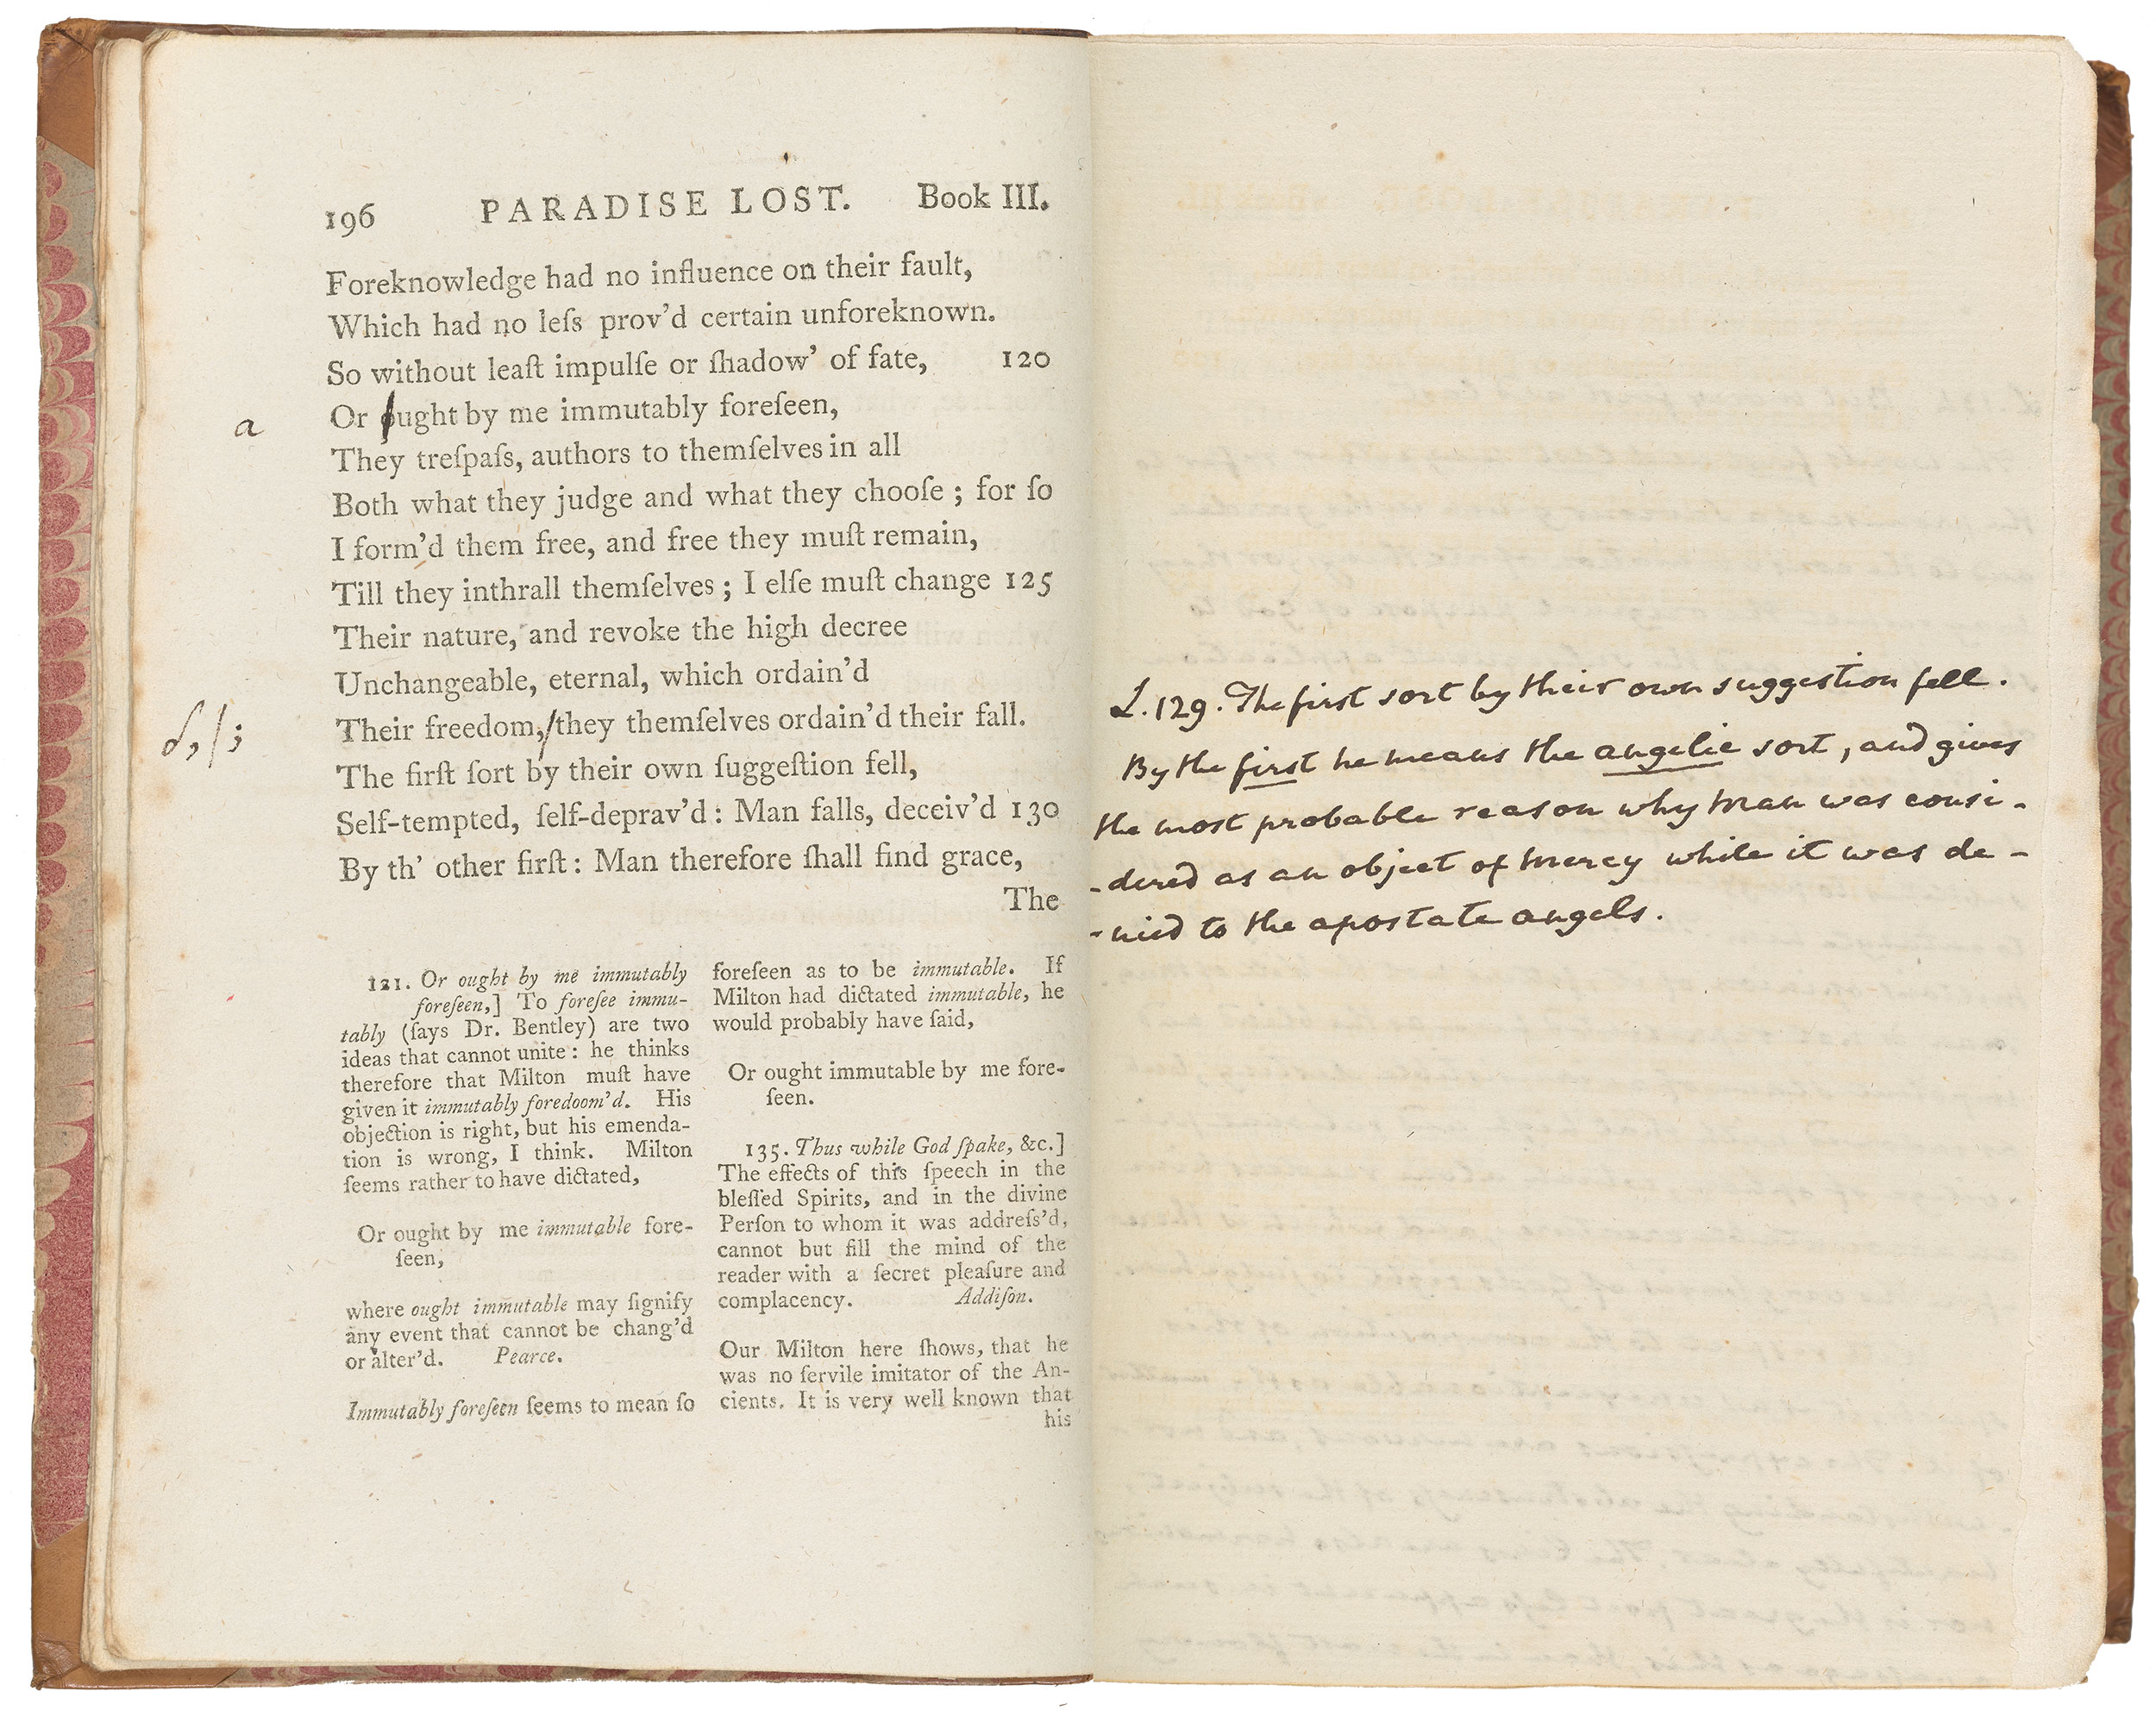 196 PARADISE LOST. Book III.
Foreknowledge had no influence on their fault,
Which had no leſs prov'd certain unforeknown.
So without leaſt impulſe or ſhadow' of fate, 120
a Or ought by me immutably foreſeen,
They treſpaſs, authors to themſelves in all
Both what they judge and what they chooſe ; for ſo
I form'd them free, and free they muſt remain,
Till they inthrall themſelves ; I elſe muſt change 125
Their nature, and revoke the high decree
Unchangeable, eternal, which ordain'd
,/; Their freedom,/they themſelves ordain'd their fall.
The firſt ſort by their own ſuggeſtion fell,
Self-tempted, ſelf-deprav'd : Man falls, deceiv'd 130
By th' other firſt : Man therefore ſhall find grace,
The
121. Or ought by me immutably
foreſeen,] To foreſee immu-
tably (ſays Dr. Bentley) are two
ideas that cannot unite : he thinks
therefore that Milton muſt have
given it immutably foredoom'd. His
objection is right, but his emenda-
tion is wrong, I think. Milton
ſeems rather to have dictated,
Or ought by me immutable fore-
ſeen,
where ought immutable may ſignify
any event that cannot be chang'd
or alter'd. Pearce.
Immutably foreſeen ſeems to mean ſo
foreſeen as to be immutable. If
Milton had dictated immutable, he
would probably have ſaid,
Or ought immutable by me fore-
ſeen.
135. Thus while God ſpake, &c.]
The effects of this ſpeech in the
bleſſed Spirits, and in the divine
Perſon to whom it was addreſs'd,
cannot but fill the mind of the
reader with a ſecret pleaſure and
complacency. Addiſon.
Our Milton here ſhows, that he
was no ſervile imitator of the An-
cients. It is very well known that
his
L. 129. The first sort by their own suggestion fell.
By the first he means the angelic sort, and gives
the most probable reason why Man was consi-
-dered as an object of Mercy while it was de-
-nied to the apostate angels.